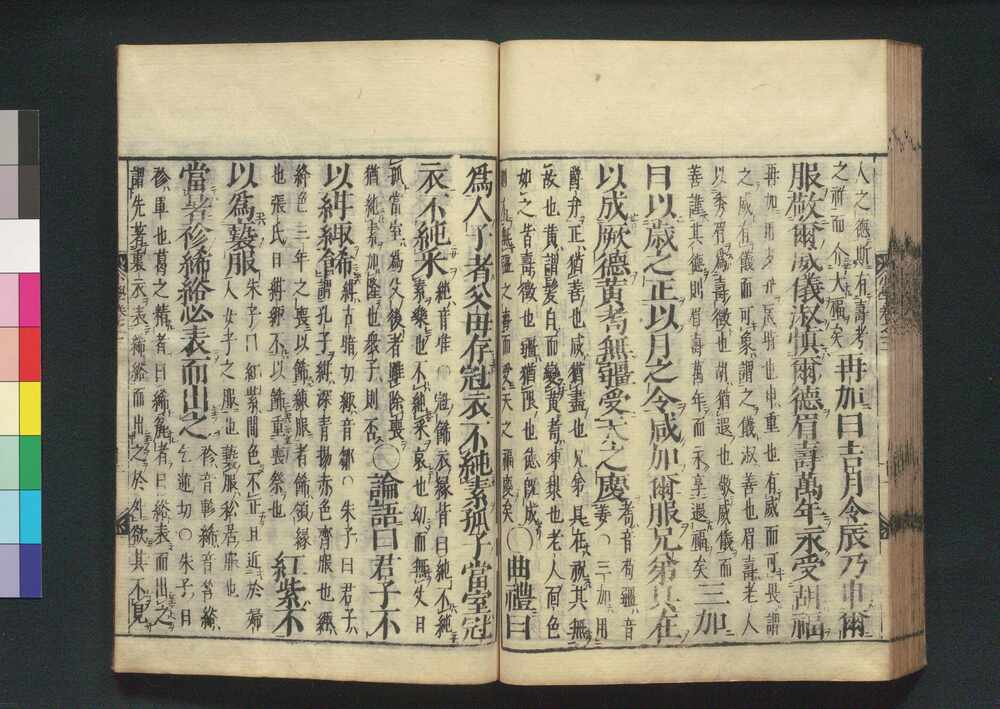 人之德斯有壽考
之祥而介大福矣再加曰吉月令辰乃申爾
服敬爾威儀淑慎爾德眉壽萬年永受胡福
再加用皮弁辰時也申重也有威而可畏謂
之威有儀而可象謂之儀淑善也眉壽老人
以秀眉為壽徵也胡猶遐也敬威儀而
善謹其德則眉壽萬年而永享遐福矣三加
曰以歲之正以月之令咸加爾服兄弟具在
以成厥德黃耇無疆受天之慶耇音苟疆音
姜○三加用
爵弁正猶善也咸猶盡也兄弟具在祝其無
故也黃謂髮白而變黃耇凍梨也老人面色
如之皆壽徵也疆猶限也德既成
則無疆之壽而受天之福慶矣○曲禮曰
為人子者父母存冠衣不純素孤子當室冠
衣不純采純音準○冠飾衣緣皆曰純不純
素樂也不純采哀也幼而無父曰
孤當室為父後者雖除喪
猶純素加隆也衆子則否○論語曰君子不
以紺緅飾紺古暗切緅音鄒○朱子曰君子
謂孔子紺深青揚赤色齊服也緅
絳色三年之喪以飾練服者飾領緣
也張氏曰紺緅不以飾重喪祭也紅紫不
以為褻服朱子曰紅紫間色不正且近於婦
人女子之服也褻服私居服也
當暑袗絺綌必表而出之袗音軫絺音
綌乞逆切○朱子曰
袗單也葛之精者曰絺麤者曰綌表而出之
謂先著裏衣表絺綌而出之於外欲其不見